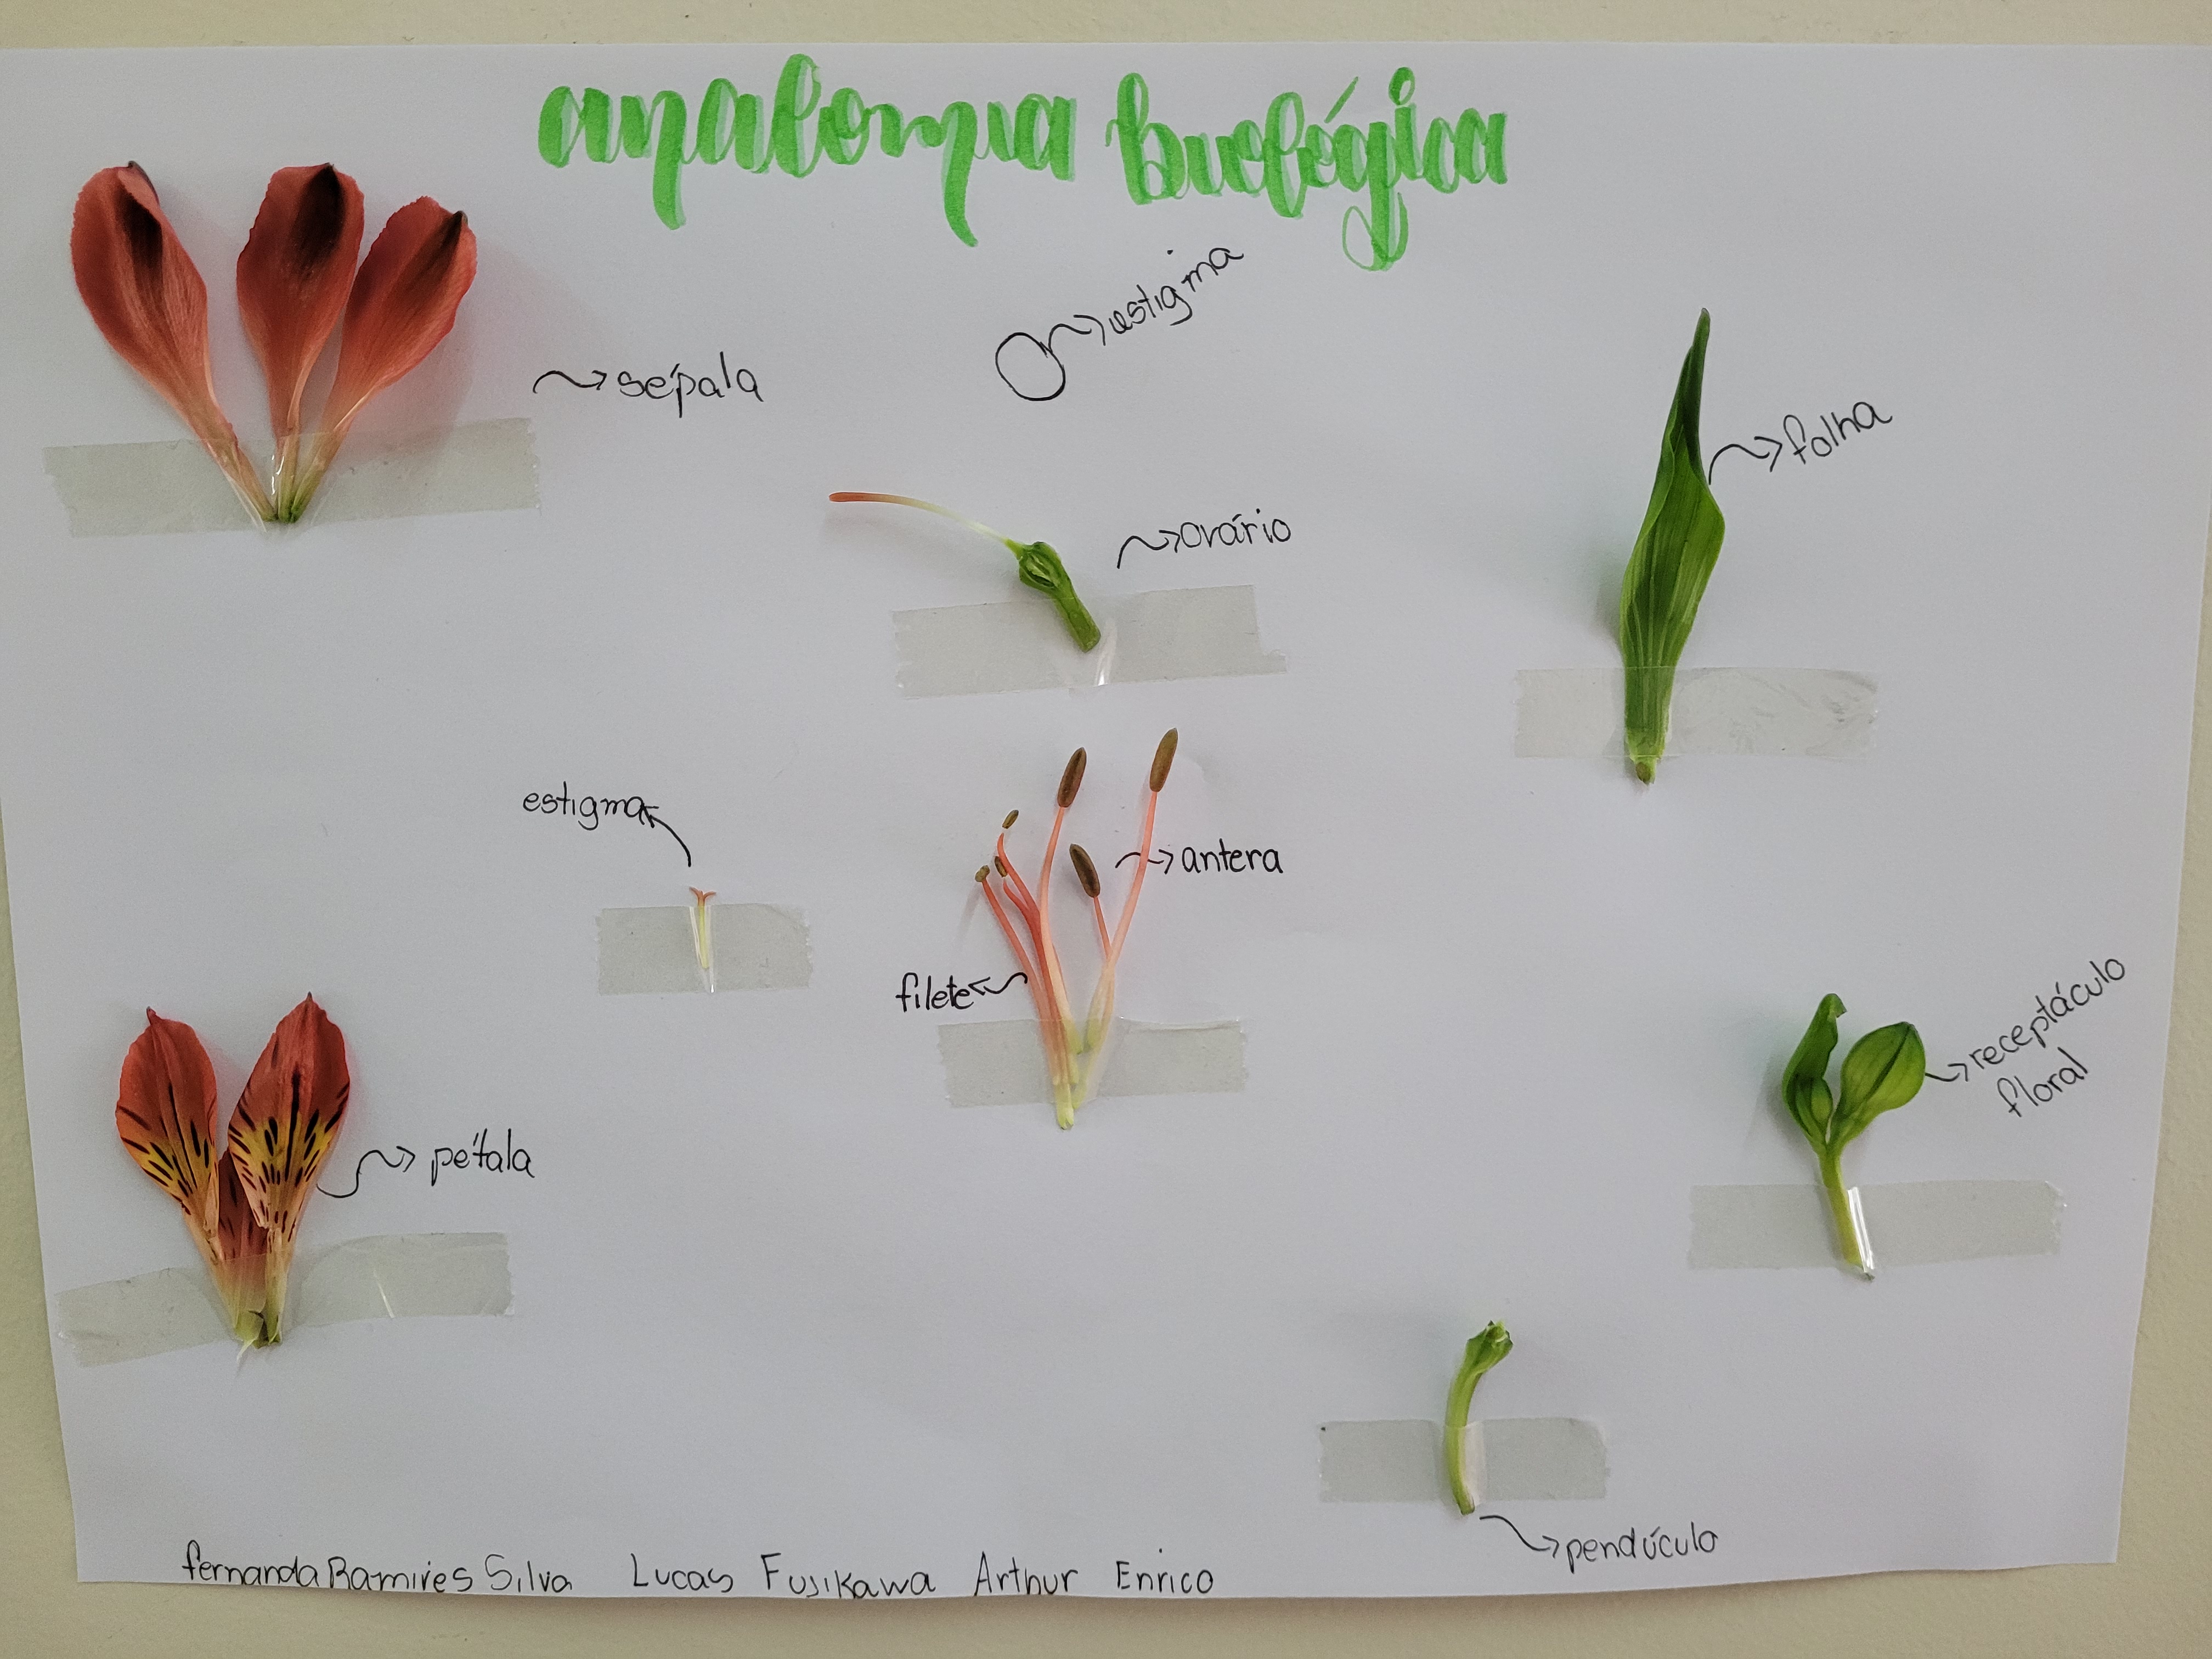 anatomia biológica
estigma
sépala
folha
ovário
estigma
antera
filete
receptáculo
floral
pétala
pendúculo
fernanda Ramires Silva Lucas Fujikawa Arthur Enrico